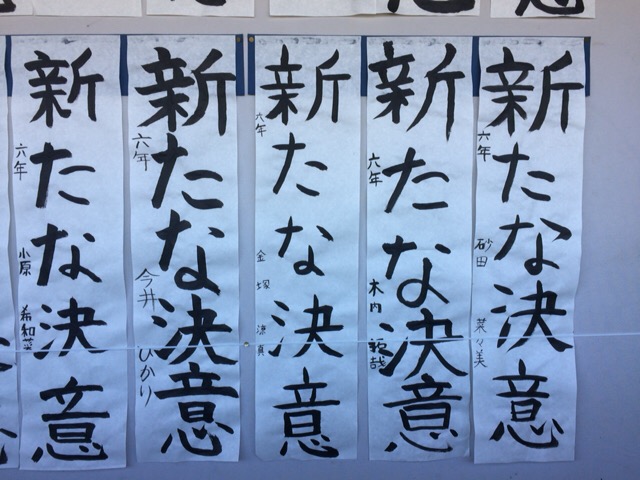 新たな決意
六年 砂田 菜々美
新たな決意
六年 木内 拓哉
新たな決意
六年 金塚
新たな決意
六年 今井 ひかり
新たな決意
六年 小原 希和菜